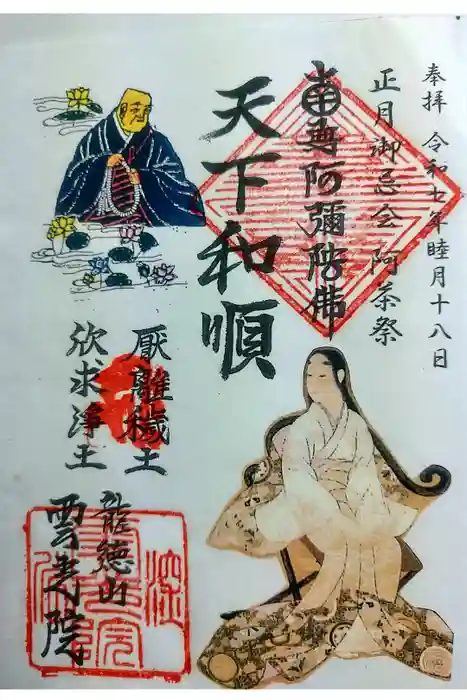 奉拝 令和七年睦月十八日
正月御忌会 阿茶祭
尊阿彌陀佛
天下和順
厭離穢土
欣求浄土
龍徳山
雲光院